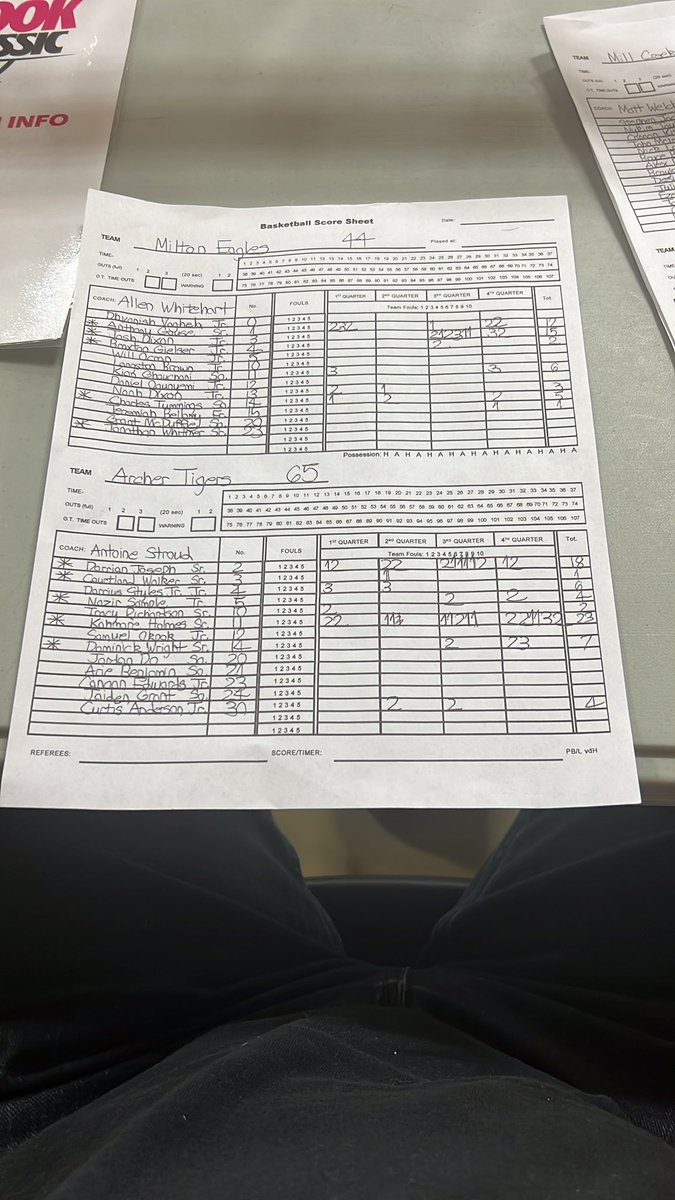 OOK
SSIC
INFO
TEAM Mill Creek
TIME:
OUTS (full) 1 2 3 (20 sec)
O.T. TIME OUTS WARNING
COACH: Matt Welch
Basketball Score Sheet
Date:
TEAM Milton Eagles 44 Played at:
TIME-
OUTS (full) 1 2 3 (20 sec) 1 2
O.T. TIME OUTS WARNING
1 2 3 4 5 6 7 8 9 10 11 12 13 14 15 16 17 18 19 20 21 22 23 24 25 26 27 28 29 30 31 32 33 34 35 36 37
38 39 40 41 42 43 44 45 46 47 48 49 50 51 52 53 54 55 56 57 58 59 60 61 62 63 64 65 66 67 68 69 70 71 72 73 74
75 76 77 78 79 80 81 82 83 84 85 86 87 88 89 90 91 92 93 94 95 96 97 98 99 100 101 102 103 104 105 106 107
COACH: Allen Whitehart No. FOULS 1ST QUARTER 2ND QUARTER 3RD QUARTER 4TH QUARTER Tot.
Team Fouls: 1 2 3 4 5 6 7 8 9 10
Jr. 0 1 2 3 4 5 232 1 22 12
* Anthony Sr. 1 1 2 3 4 5 212311 32 15
* Josh Dixon Jr. 3 1 2 3 4 5 2 2
* Braxton Jr. 4 1 2 3 4 5
Will Jr. 5 1 2 3 4 5
Langston Brown Jr. 10 1 2 3 4 5 3 3 6
Kian So. 11 1 2 3 4 5
Daniel Ogunyemi Jr. 12 1 2 3 4 5
Noah Dixon Jr. 13 1 2 3 4 5 2 1 3
* Charles Tummins So. 14 1 2 3 4 5 1 2 2 5
Jeremiah Bellamy Fr. 15 1 2 3 4 5 1 1
Grant McDuffie So. 1 2 3 4 5
* Jonathan Whitmer Sr. 1 2 3 4 5
1 2 3 4 5
Possession: H A H A H A H A H A H A H A H A H A H A
TEAM Archer Tigers 65
TIME-
OUTS (full) 1 2 3 (20 sec) 1 2
O.T. TIME OUTS WARNING
1 2 3 4 5 6 7 8 9 10 11 12 13 14 15 16 17 18 19 20 21 22 23 24 25 26 27 28 29 30 31 32 33 34 35 36 37
38 39 40 41 42 43 44 45 46 47 48 49 50 51 52 53 54 55 56 57 58 59 60 61 62 63 64 65 66 67 68 69 70 71 72 73 74
75 76 77 78 79 80 81 82 83 84 85 86 87 88 89 90 91 92 93 94 95 96 97 98 99 100 101 102 103 104 105 106 107
COACH: Antoine Stroud No. FOULS 1ST QUARTER 2ND QUARTER 3RD QUARTER 4TH QUARTER Tot.
Team Fouls: 1 2 3 4 5 6 7 8 9 10
* Darrian Joseph Sr. 2 1 2 3 4 5 12 22 211112 12 18
* Courtland Walker Sr. 3 1 2 3 4 5 1 1
Darrius Styles Jr. Jr. 4 1 2 3 4 5 3 3 6
* Nazir Sample Jr. 5 1 2 3 4 5 2 2 4
Tracy Richardson Sr. 10 1 2 3 4 5 2 2
* Kahmare Holmes Sr. 11 1 2 3 4 5 22 113 11211 221132 23
Samuel Okook Jr. 12 1 2 3 4 5
* Dominick Wright Sr. 14 1 2 3 4 5 2 23 7
Jordan Do So. 20 1 2 3 4 5
Arie Benjamin So. 21 1 2 3 4 5
Canaan Edwards Jr. 23 1 2 3 4 5
Jaiden Grant So. 24 1 2 3 4 5
Curtis Anderson Jr. 30 1 2 3 4 5 2 2 4
1 2 3 4 5
1 2 3 4 5
REFEREES: SCORE/TIMER: PB/L vdH